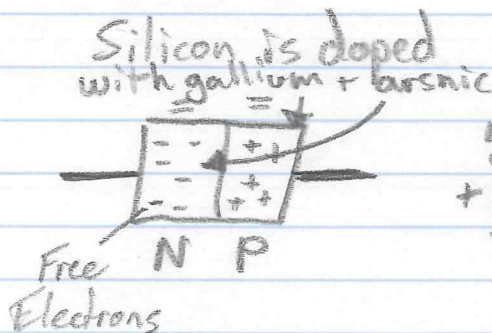 Silicon is doped
with gallium + arsnic
- - + +
= +
- + +
- -
N P
Free
Electrons
+